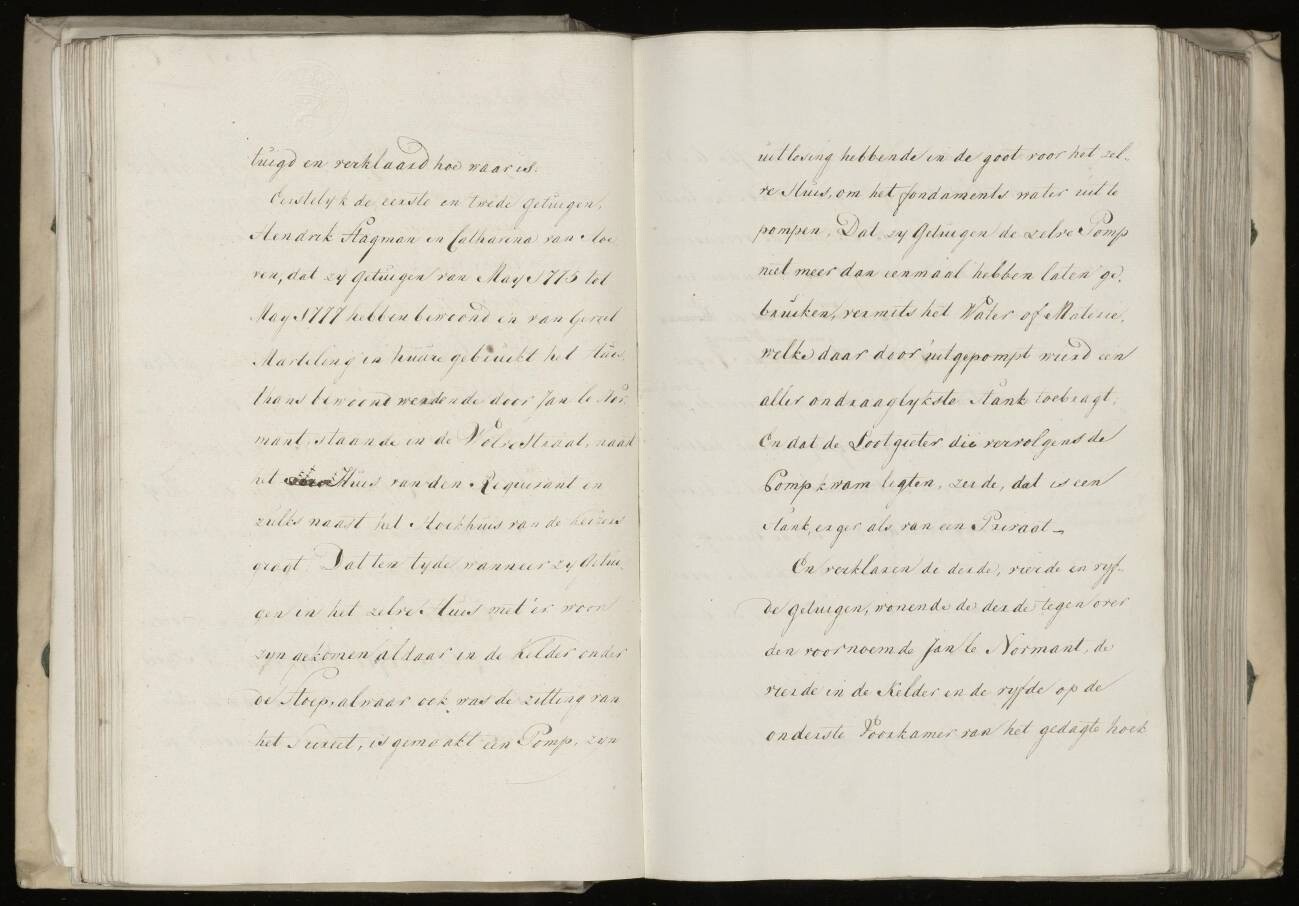 tuigd en verklaard hoe waar is.
Eerstelyk de eerste en twede getuigen,
Hendrik Stagman en Catharina van Hoe
ven, dat zy getuigen van May 1775 tot
May 1777 hebben bewoond en van Gerret
Marteling in huure gebruikt het Huis,
thans bewoond werdende door Jan le Nor
mant, staande in de Wolvestraat, naast
het Huis van den Requirant en
zulks naast het Hoekhuis van de Keizers
gragt. Dat ten tyde wanneer zy Getui
gen in het zelve Huis met'er woon
zyn gekomen aldaar in de kelder onder
de Stoep, alwaar ook was de zitting van
het Secreet, is gemaakt een Pomp, zyn
uitlosing hebbende in de goot voor het zel-
ve Huis, om het fondaments water uit te
pompen. Dat zy Getuigen de zelve Pomp
niet meer dan eenmaal hebben laten ge
bruiken, vermits het Water of Materie,
welke daar door uitgepompt wierd een
aller ondraaglykste Stank toebragt.
En dat de Lootgieter die vervolgens de
Pomp kwam ligten, zeide, dat is een
Stank, erger als van een Privaat —
En verklaren de derde, vierde en vyf-
de getuigen, wonende de derde tegen over
den voornoemde Jan le Normant, de
vierde in de Kelder en de vyfde op de
onderste Voorkamer van het gedagte hoek